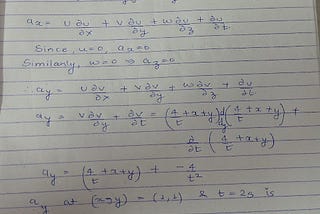 ax = u ∂u/∂x + v ∂u/∂y + w ∂u/∂z + ∂u/∂t
Since, u=0, ax=0
Similarly, w=0 ⇒ az=0
∴ ay = u ∂v/∂x + v ∂v/∂y + w ∂v/∂z + ∂v/∂t
ay = v ∂v/∂y + ∂v/∂t = (4/t + x+y) d/dy (4/t + x+y) +
∂/∂t (4/t + x+y)
ay = (4/t + x+y) + -4/t²
ay at (x,y) = (1,1) & t = 2s is